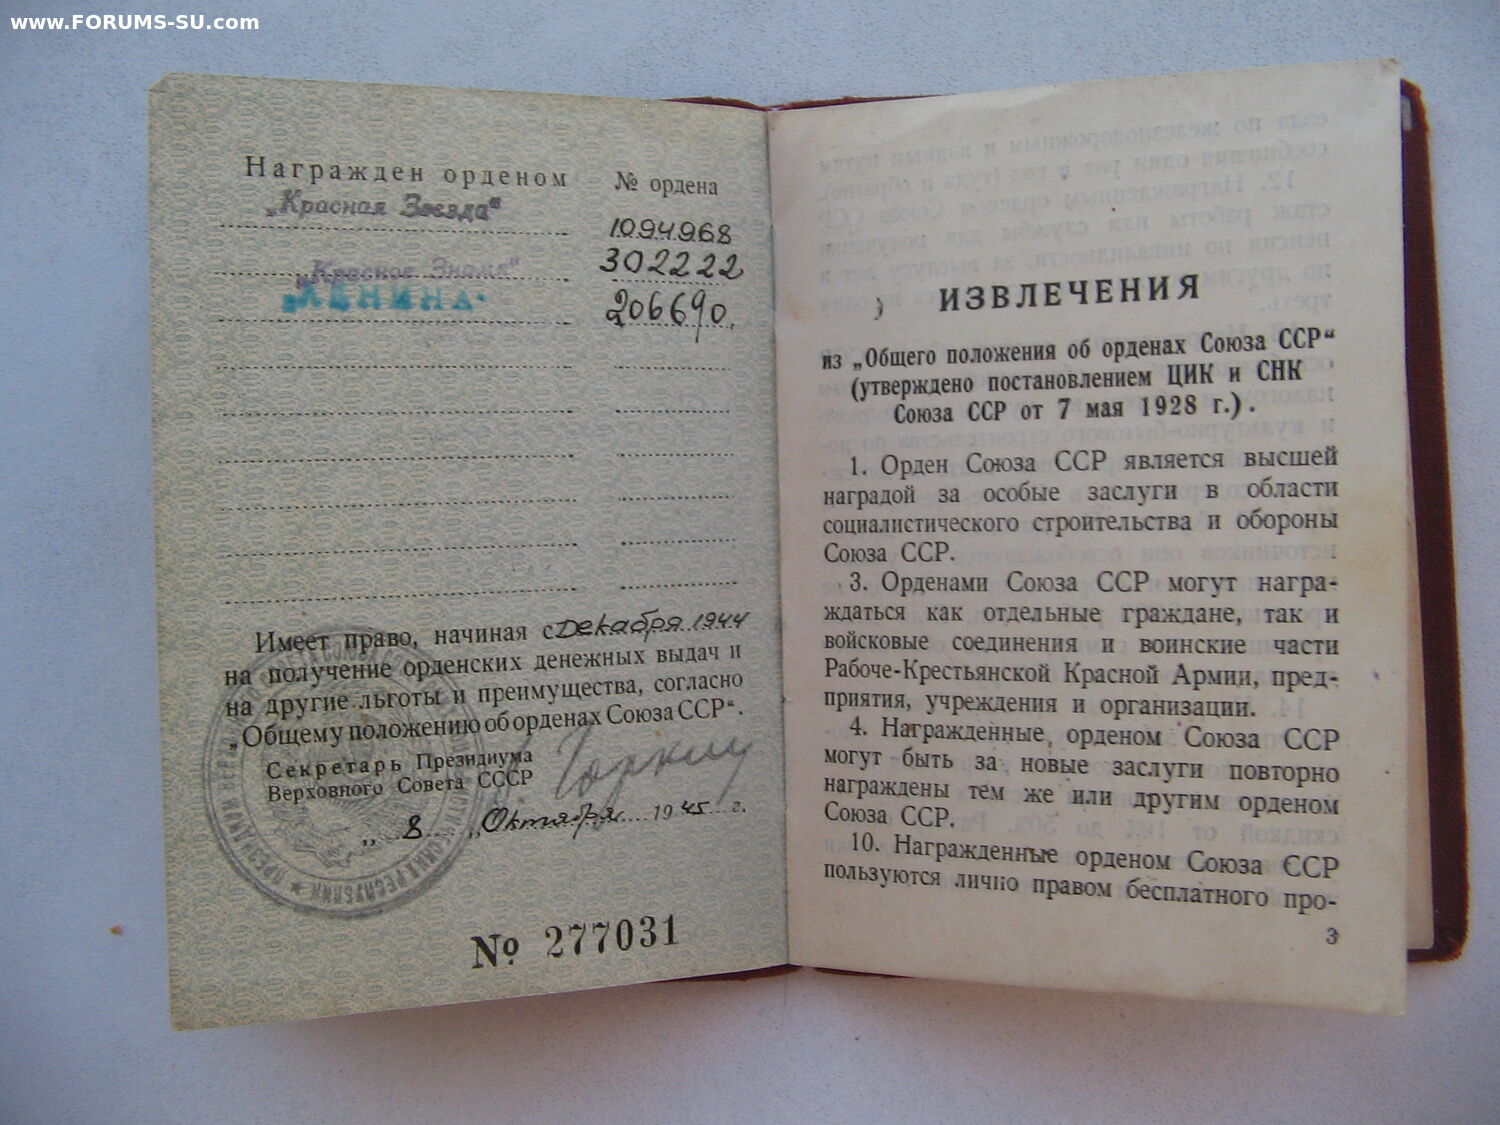 www.FORUMS-SU.com
Награжден орденом № ордена
„Красная Звезда" 1094968
„Красное Знамя" 302222
„ЛЕНИНА" 206690
Имеет право, начиная с Декабря 1944
на получение орденских денежных выдач и
на другие льготы и преимущества, согласно
„Общему положению об орденах Союза ССР".
Секретарь Президиума
Верховного Совета СССР
Горкин
„ 8 „ Октября 1945 г.
№ 277031
ИЗВЛЕЧЕНИЯ
из „Общего положения об орденах Союза ССР"
(утверждено постановлением ЦИК и СНК
Союза ССР от 7 мая 1928 г.).
1. Орден Союза ССР является высшей
наградой за особые заслуги в области
социалистического строительства и обороны
Союза ССР.
3. Орденами Союза ССР могут награ-
ждаться как отдельные граждане, так и
войсковые соединения и воинские части
Рабоче-Крестьянской Красной Армии, пред-
приятия, учреждения и организации.
4. Награжденные орденом Союза ССР
могут быть за новые заслуги повторно
награждены тем же или другим орденом
Союза ССР.
10. Награжденные орденом Союза ССР
пользуются лично правом бесплатного про-
3